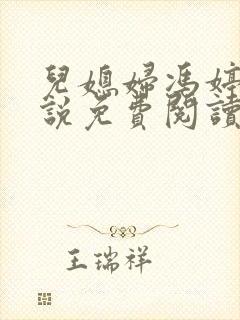 兒媳婦馮婷
說免費閱讀
王瑞祥